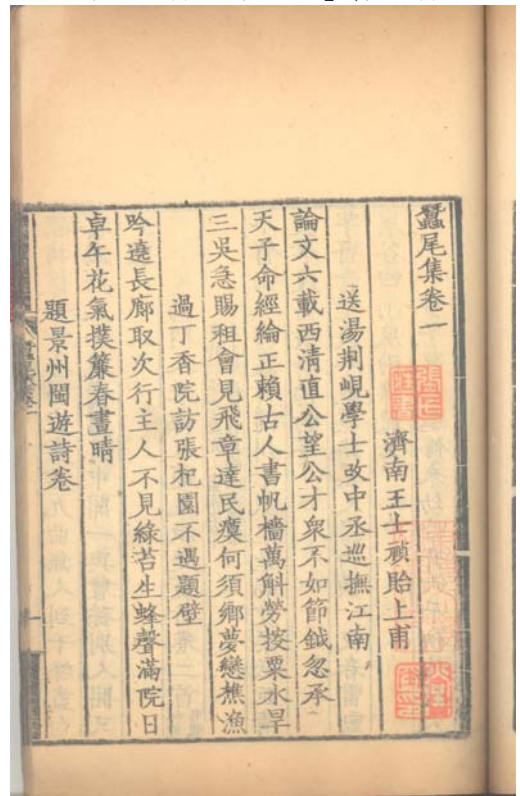 蠶尾集卷一
濟南王士禎貽上甫
送湯荆峴學士改中丞巡撫江南
論文六載西清直公望公才衆不如節鉞忽承
天子命經綸正賴古人書帆檣萬斛勞挽粟水旱
三吳急賜租會見飛章達民瘼何須鄉夢戀樵漁
過丁香院訪張杞園不遇題壁
吟遶長廊取次行主人不見綠苔生蜂聲滿院日
卓午花氣撲簾春晝晴
題景州閩遊詩卷